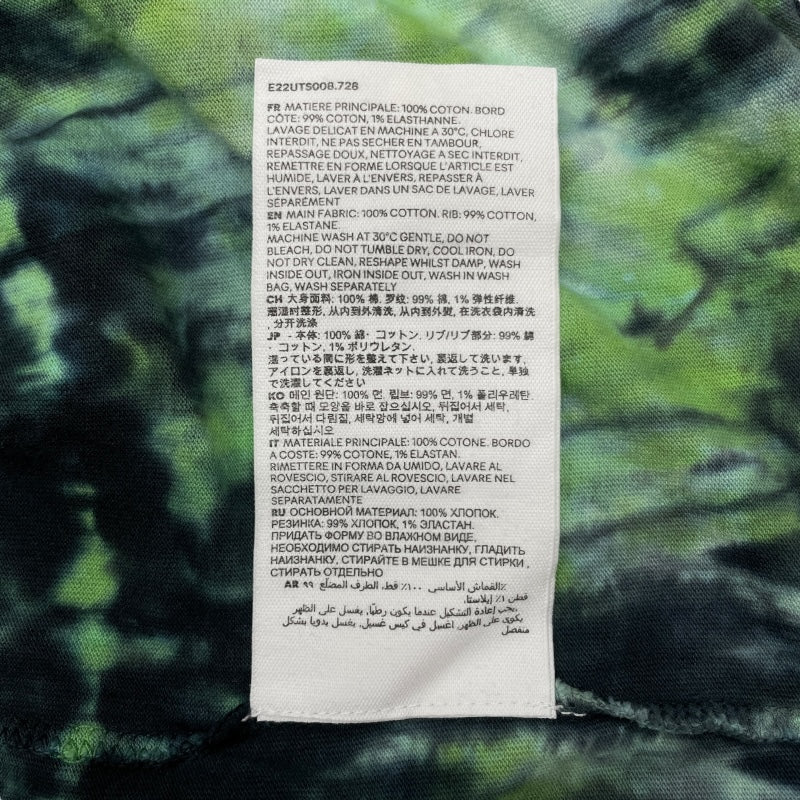 E22UTS008.728
FR MATIERE PRINCIPALE: 100% COTON. BORD
CÔTE: 99% COTON, 1% ELASTHANNE.
LAVAGE DELICAT EN MACHINE A 30°C, CHLORE
INTERDIT, NE PAS SECHER EN TAMBOUR,
REPASSAGE DOUX, NETTOYAGE A SEC INTERDIT,
REMETTRE EN FORME LORSQUE L'ARTICLE EST
HUMIDE, LAVER À L'ENVERS, REPASSER À
L'ENVERS, LAVER DANS UN SAC DE LAVAGE, LAVER
SÉPARÉMENT
EN MAIN FABRIC: 100% COTTON. RIB: 99% COTTON,
1% ELASTANE.
MACHINE WASH AT 30°C GENTLE, DO NOT
BLEACH, DO NOT TUMBLE DRY, COOL IRON, DO
NOT DRY CLEAN, RESHAPE WHILST DAMP, WASH
INSIDE OUT, IRON INSIDE OUT, WASH IN WASH
BAG, WASH SEPARATELY
CH 大身面料: 100% 棉. 罗纹: 99% 棉, 1% 弹性纤维.
潮湿时整形, 从内到外清洗, 从内到外熨, 在洗衣袋内清洗
, 分开洗涤
JP - 本体: 100% 綿・コットン. リブ/リブ部分: 99% 綿
・コットン, 1% ポリウレタン.
湿っている間に形を整えて下さい, 裏返して洗います,
アイロンを裏返し, 洗濯ネットに入れて洗うこと, 単独
で洗濯してください
KO 메인 원단: 100% 면. 립브: 99% 면, 1% 폴리우레탄.
축축할 때 모양을 바로 잡으십시오, 뒤집어서 세탁,
뒤집어서 다림질, 세탁망에 넣어 세탁, 개별
세탁하십시오
IT MATERIALE PRINCIPALE: 100% COTONE. BORDO
A COSTE: 99% COTONE, 1% ELASTAN.
RIMETTERE IN FORMA DA UMIDO, LAVARE AL
ROVESCIO, STIRARE AL ROVESCIO, LAVARE NEL
SACCHETTO PER LAVAGGIO, LAVARE
SEPARATAMENTE
RU ОСНОВНОЙ МАТЕРИАЛ: 100% ХЛОПОК.
РЕЗИНКА: 99% ХЛОПОК, 1% ЭЛАСТАН.
ПРИДАТЬ ФОРМУ ВО ВЛАЖНОМ ВИДЕ,
НЕОБХОДИМО СТИРАТЬ НАИЗНАНКУ, ГЛАДИТЬ
НАИЗНАНКУ, СТИРАЙТЕ В МЕШКЕ ДЛЯ СТИРКИ ,
СТИРАТЬ ОТДЕЛЬНО
AR القماش الأساسي ١٠٠٪ قط. الطرف المضلّع ٩٩٪
قطن ١٪ إيلاستا.
يجب إعادة التشكيل عندما يكون رطبًا, يغسل على الظهر
يكوى على الظهر, اغسل في كيس غسيل, يغسل يدويا بشكل
منفصل